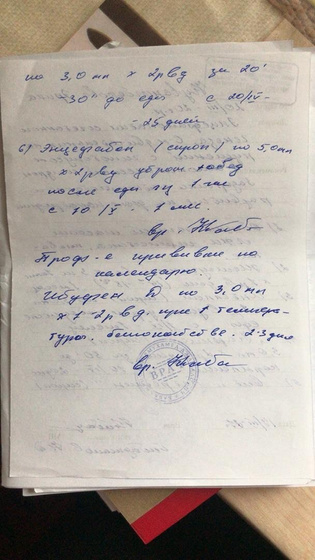 по 3,0 мл х 2р в д за 20'
30' до еды с 20/IV -
- 25 дней
6) Энцефабол (сироп) по 5,0 мл
х 2р в д утром + обед
после еды 1 час
с 10/V. 1 мес.
вр.
Прод-е прививки по
календарю.
Ибуфен Д по 3,0 мл
х 1-2р в д. при ↑ темпера-
туры, беспокойстве. 2-3 дня
вр.
ВРАЧ